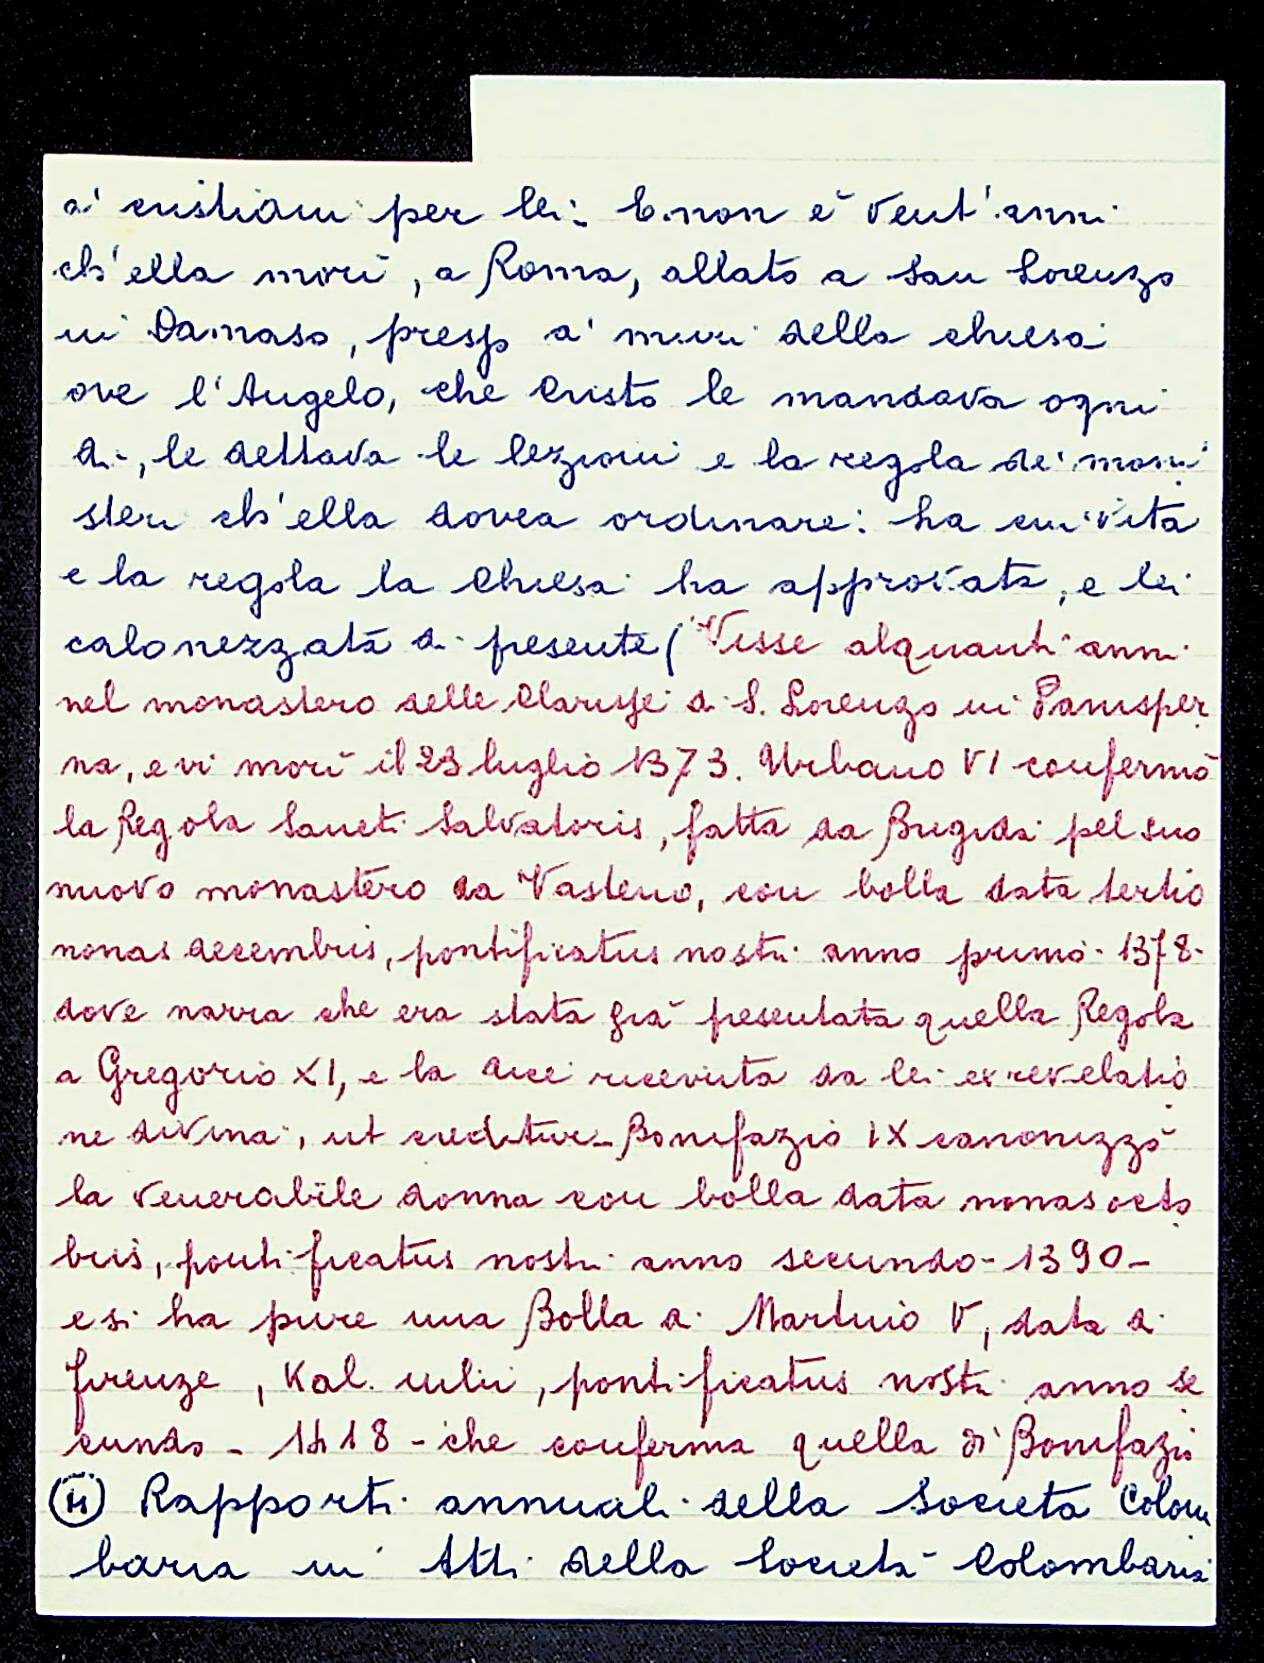 a' cristiani per lei: E non è vent'anni
ch'ella morì, a Roma, allato a San Lorenzo
in Damaso, presso a' muri della chiesa
ove l'Angelo, che Cristo le mandava ogni
dì, le dettava le lezioni e la regola de' moni
steri ch'ella dovea ordinare: ha cui vita
e la regola la Chiesa ha approvata, e lei
calonezzata di presente (Visse alquanti anni
nel monastero delle Clarisse di S. Lorenzo in Panisper
na, e vi morì il 23 luglio 1373. Urbano VI confermò
la Regola Sancti Salvatoris, fatta da Brigida pel suo
nuovo monastero da Vasteno, con bolla data tertio
nonas decembris, pontificatus nostri anno primo - 1378 -
dove narra che era stata già presentata quella Regola
a Gregorio XI, e la dice ricevuta da lei ex revelatio
ne divina, ut creditur - Bonifazio IX canonizzò
la venerabile donna con bolla data nonas octo
bris, pontificatus nostri anno secundo - 1390 -
e si ha pure una Bolla di Martino V, data di
Firenze, Kal. iulii, pontificatus nostri anno se
cundo - 1418 - che conferma quella di Bonifazio
Rapporti annuali della Società Colom
baria in Atti della Società Colombaria